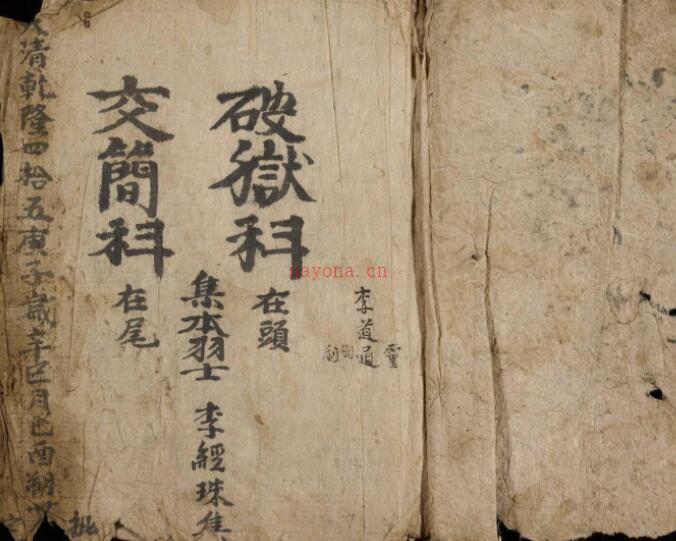 李道通
靈
破獄科
在頭
集本羽士 李經珠
交簡科
在尾
大清乾隆四拾五庚子歲辛巳月己酉朔
批
nayona.cn